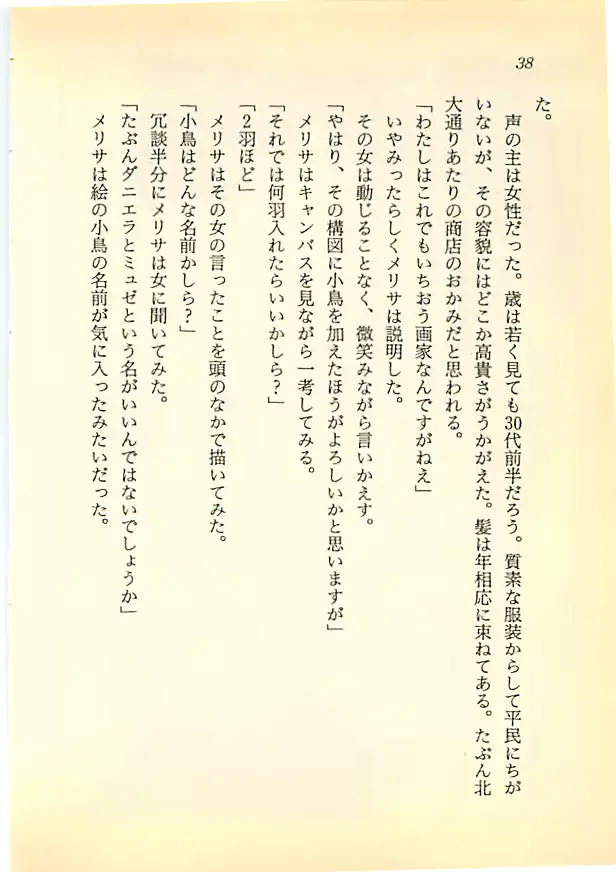 38
た。
　声の主は女性だった。歳は若く見ても30代前半だろう。質素な服装からして平民にちが
いないが、その容貌にはどこか高貴さがうかがえた。髪は年相応に束ねてある。たぶん北
大通りあたりの商店のおかみだと思われる。
「わたしはこれでもいちおう画家なんですがねえ」
　いやみったらしくメリサは説明した。
　その女は動じることなく、微笑みながら言いかえす。
「やはり、その構図に小鳥を加えたほうがよろしいかと思いますが」
　メリサはキャンバスを見ながら一考してみる。
「それでは何羽入れたらいいかしら？」
「2羽ほど」
　メリサはその女の言ったことを頭のなかで描いてみた。
「小鳥はどんな名前かしら？」
　冗談半分にメリサは女に聞いてみた。
「たぶんダニエラとミュゼという名がいいんではないでしょうか」
　メリサは絵の小鳥の名前が気に入ったみたいだった。